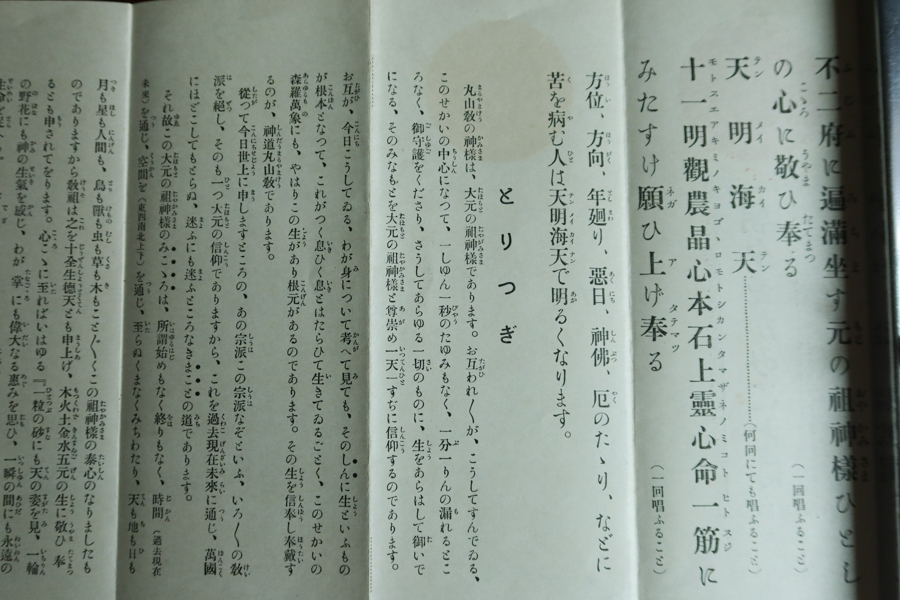 不二府に遍滿坐す元の祖神樣ひとし
の心に敬ひ奉る（一回唱ふること）
天明海天……………（何回にても唱ふること）
十一明觀農晶心本石上靈心命一筋に
みたすけ願ひ上げ奉る（一回唱ふること）
方位、方向、年廻り、惡日、神佛、厄のたゝり、などに
苦を病む人は天明海天で明るくなります。
とりつぎ
丸山敎の神樣は、大元の祖神樣であります。お互われ〱が、こうしてすんでゐる、
このせかいの中心になつて、一しゆん一秒のたゆみもなく、一分一りんの漏れるとこ
ろなく、御守護をくださり、さうしてあらゆる一切のものに、生をあらはして御いで
になる、そのみなもとを大元の祖神樣と尊崇め一天一すぢに信仰するのであります。
お互が、今日こうしてゐる、わが身について考へて見ても、そのしんに生といふもの
が根本となつて、これがつく息ひく息とはたらひて生きてゐるごとく、このせかいの
森羅萬象にも、やはりこの生があり根元があるのであります。その生を信奉し奉戴す
るのが、神道丸山敎であります。
從つて今日世上に申しますところの、あの宗派この宗派なぞといふ、いろ〱の敎
派を絕し、そのも一つ大元の信仰でありますから、これを過去現在未來に通じ、萬國
にはどこしてもとらぬ、迷ふにも迷ふところなきまことの道であります。
それ故この大元の祖神樣のみこゝろは、所謂始めもなく終りもなく、時間（過去現在
未來）を通じ、空間を（東西南北上下）を通じ、至らぬくまなくみちわたり、天も地も日も
月も星も人間も、鳥も獸も虫も草も木もこと〲くこの祖神樣の泰心のなりましたも
のでありますから敎祖は之を十全生德天とも申上げ、木火土金水五元の生に敬ひ奉
るとも申されてをります。心こゝに至ればいはゆる『一粒の砂にも天の姿を見、一輪
の野花にも神の生氣を感じ、わが掌にも偉大なる惠みを思ひ、一瞬の間にも永遠の